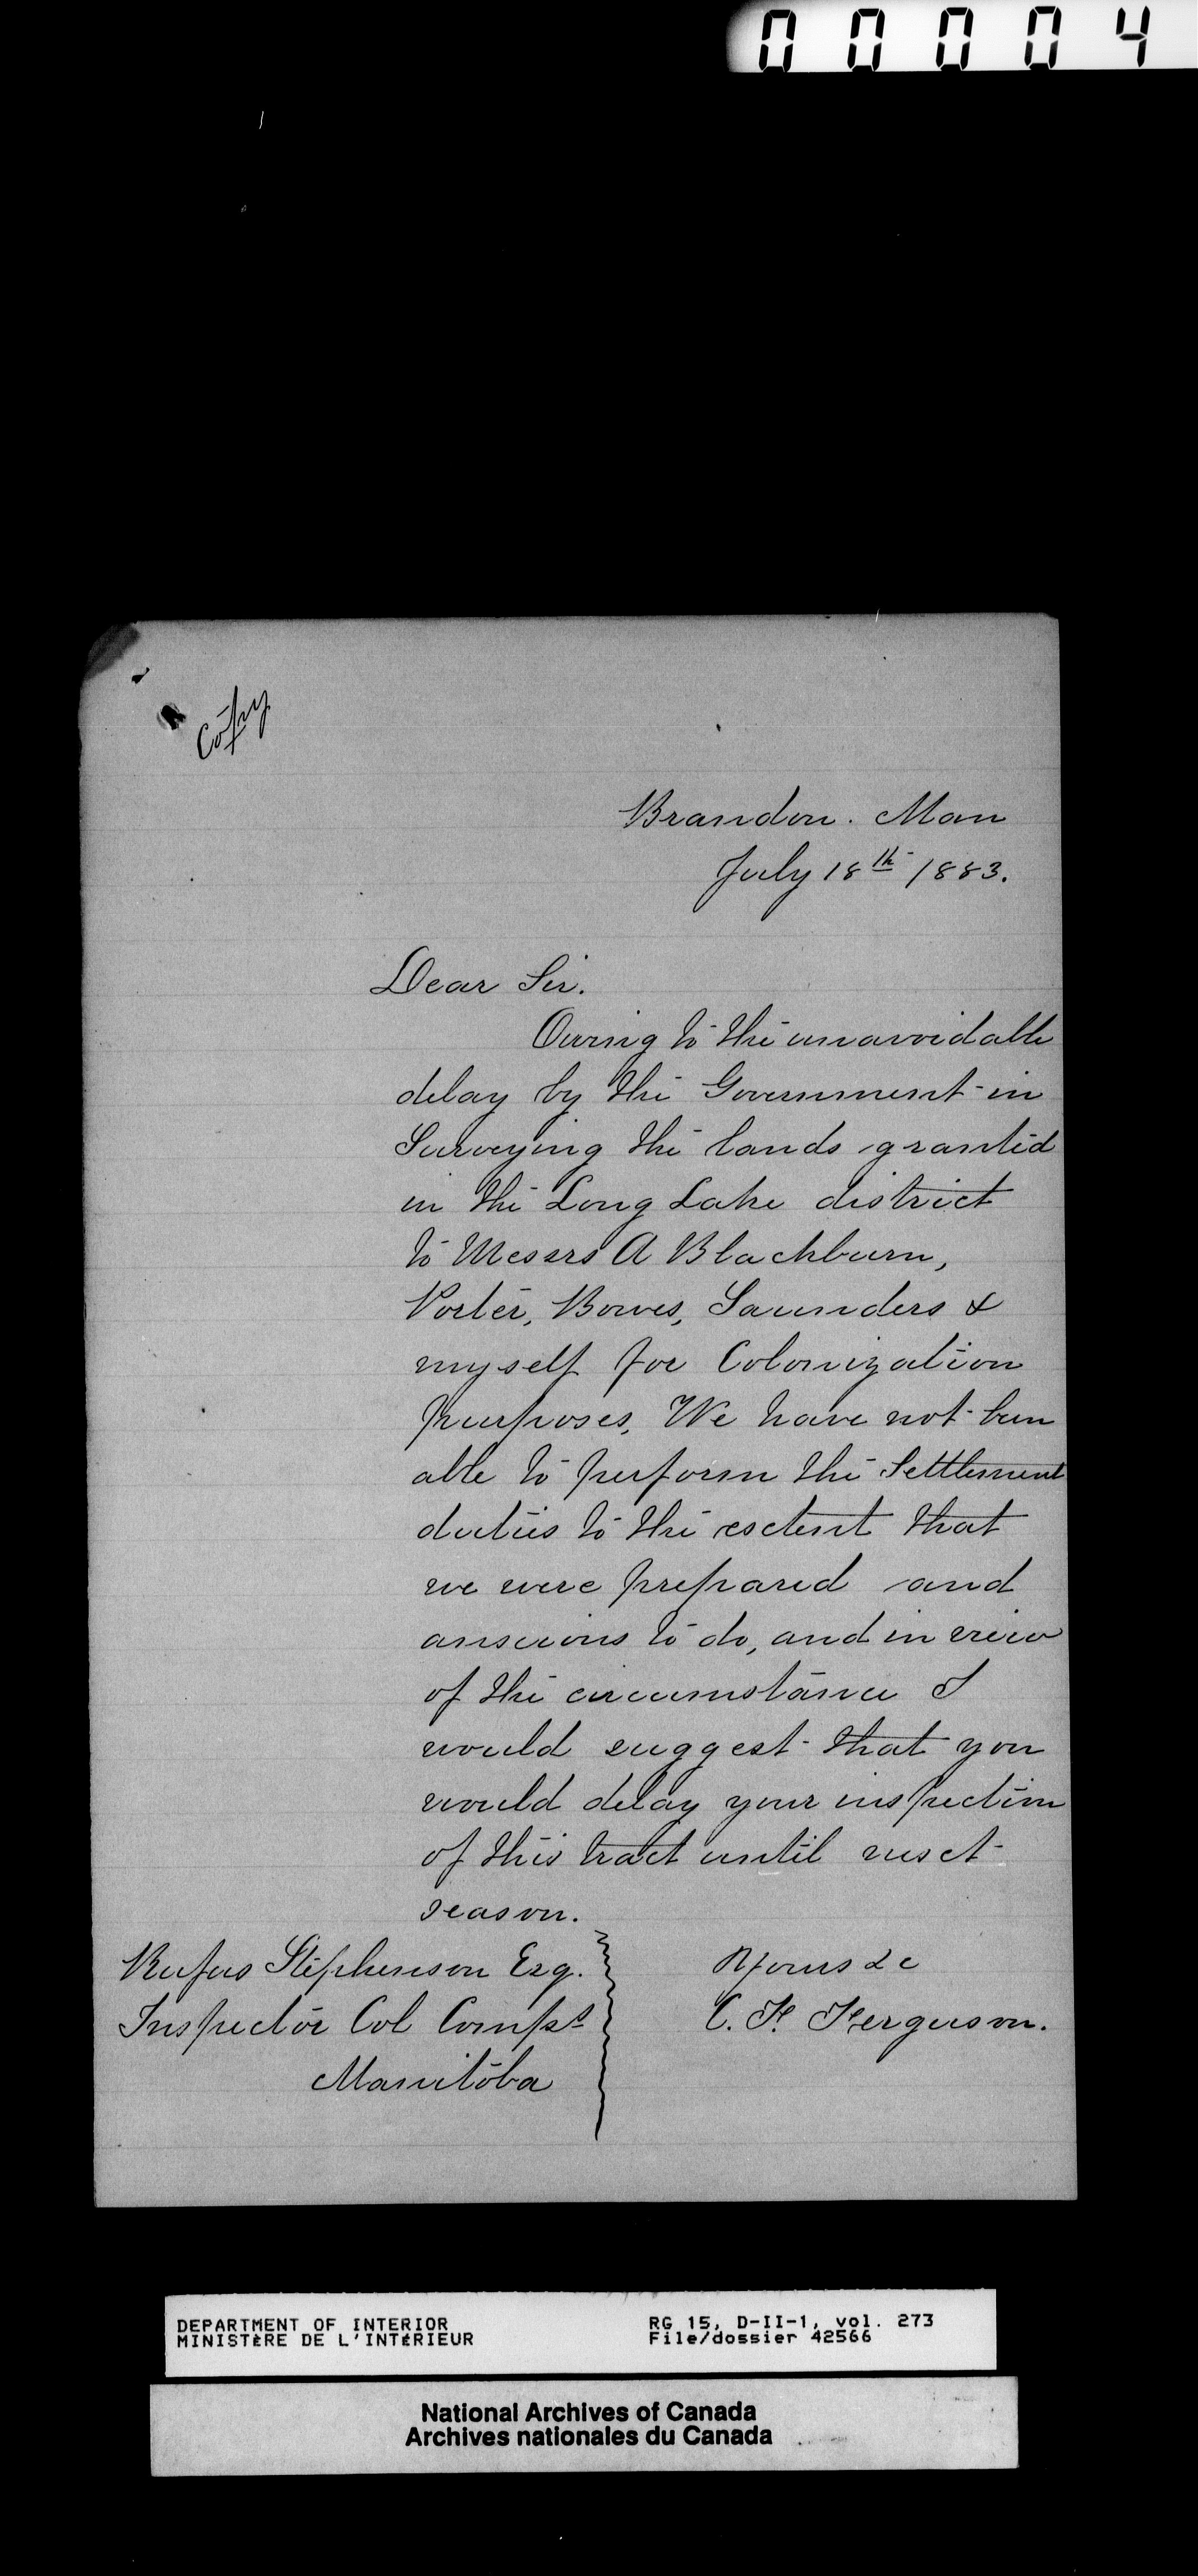 00004
Copy
Brandon. Man
July 18th 1883.
Dear Sir.
Owing to the unavoidable
delay by the Government in
Surveying the lands granted
in the Long Lake district
to Messrs A Blackburn,
Porter, Bowes, Saunders &
myself for Colonization
purposes, We have not been
able to perform the Settlement
duties to the extent that
we were prepared and
anxious to do, and in view
of the circumstance I
would suggest that you
would delay your inspection
of this tract until next
season.
Rufus Stephenson Esq.
Inspector Col Comps
Manitoba
Yours &c
C. F. Ferguson.
DEPARTMENT OF INTERIOR
MINISTÈRE DE L'INTÉRIEUR
RG 15, D-II-1, vol. 273
File/dossier 42566
National Archives of Canada
Archives nationales du Canada